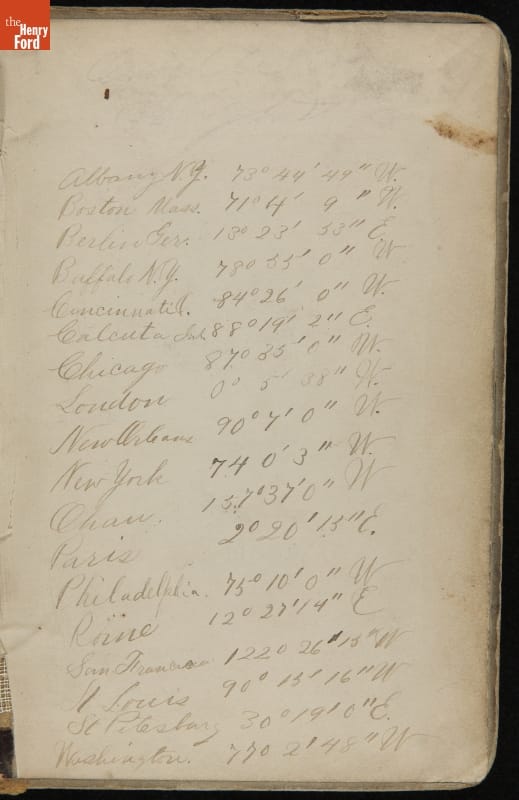 the
Henry
Ford
Albany N.Y. 73° 44' 49" W.
Boston Mass. 71° 4' 9" W.
Berlin Ger. 13° 23' 53" E.
Buffalo N.Y. 78° 55' 0" W
Cincinnati O. 84° 26' 0" W.
Calcuta Ind. 88° 19' 2" E.
Chicago 87° 35' 0" W.
London 0° 5' 38" W.
New Orleans 90° 7' 0" W.
New York 74 0' 3" W.
157° 37' 0" W
Paris 2° 20' 15" E.
Philadelphia. 75° 10' 0" W
Rome 12° 27' 14" E
San Francisco 122° 26" 15" W
St Louis 90° 15' 16" W
St Petesburg 30° 19' 0" E.
Washington. 77° 2' 48" W